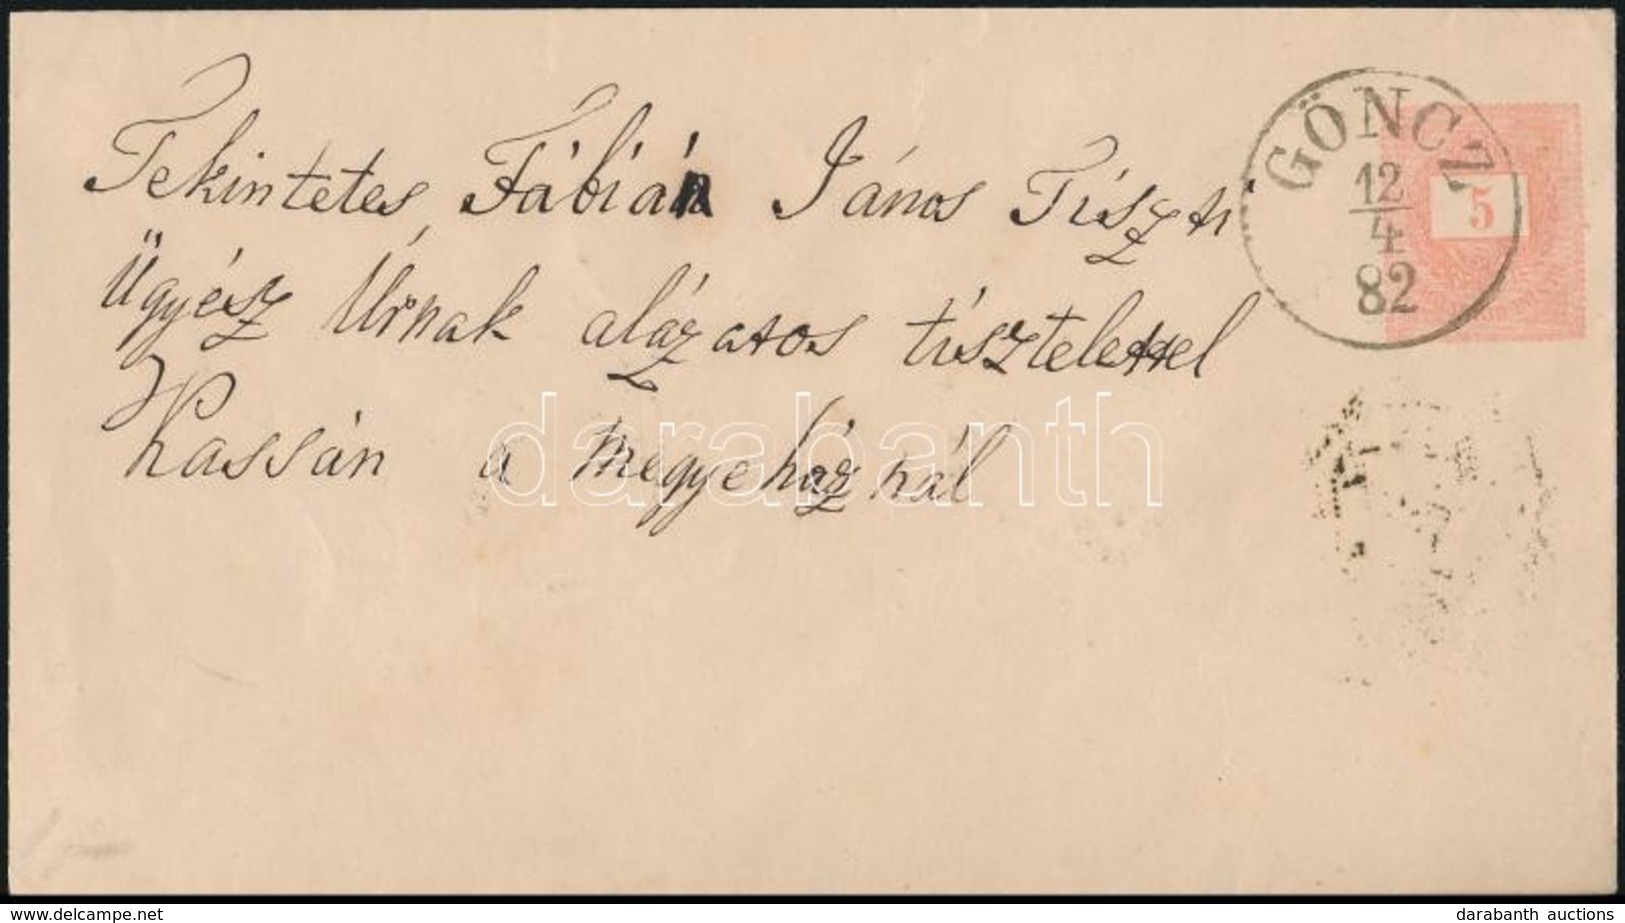 Tekintetes Fábián János Tiszti
Ügyész Úrnak alázatos tisztelettel
Kassán a megyeháznál
GÖNCZ
12
4
82
5
darabanth
delcampe.net
darabanth auctions